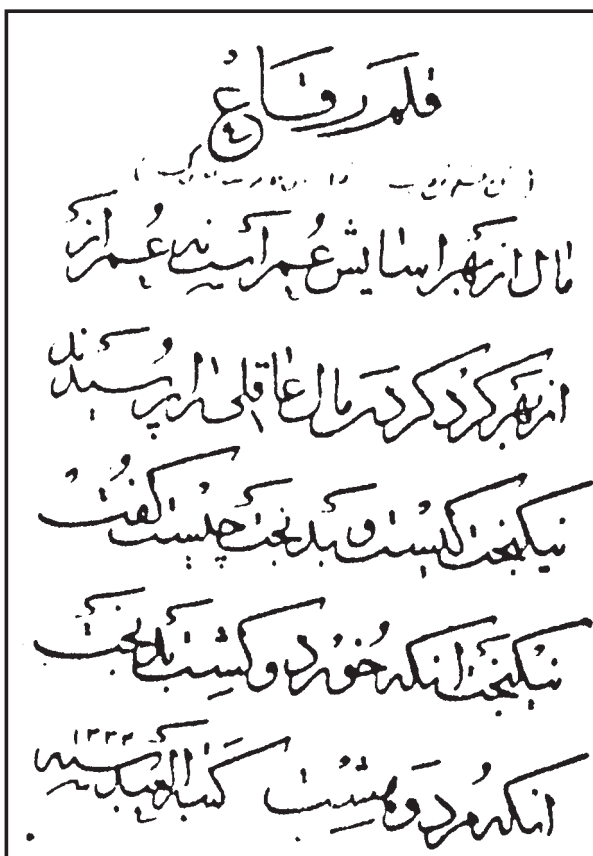 قلم رقاع
مال از بهر آسایش عمرست نه عمر از
از بهر کرد کردن مال عاقلی را پرسیدند
نیکبخت کیست و بدبخت چیست گفت
نیکبخت آنکه خورد و کشت بدبخت
آنکه مرد و هشت کتبه العبد ۱۳۳۲